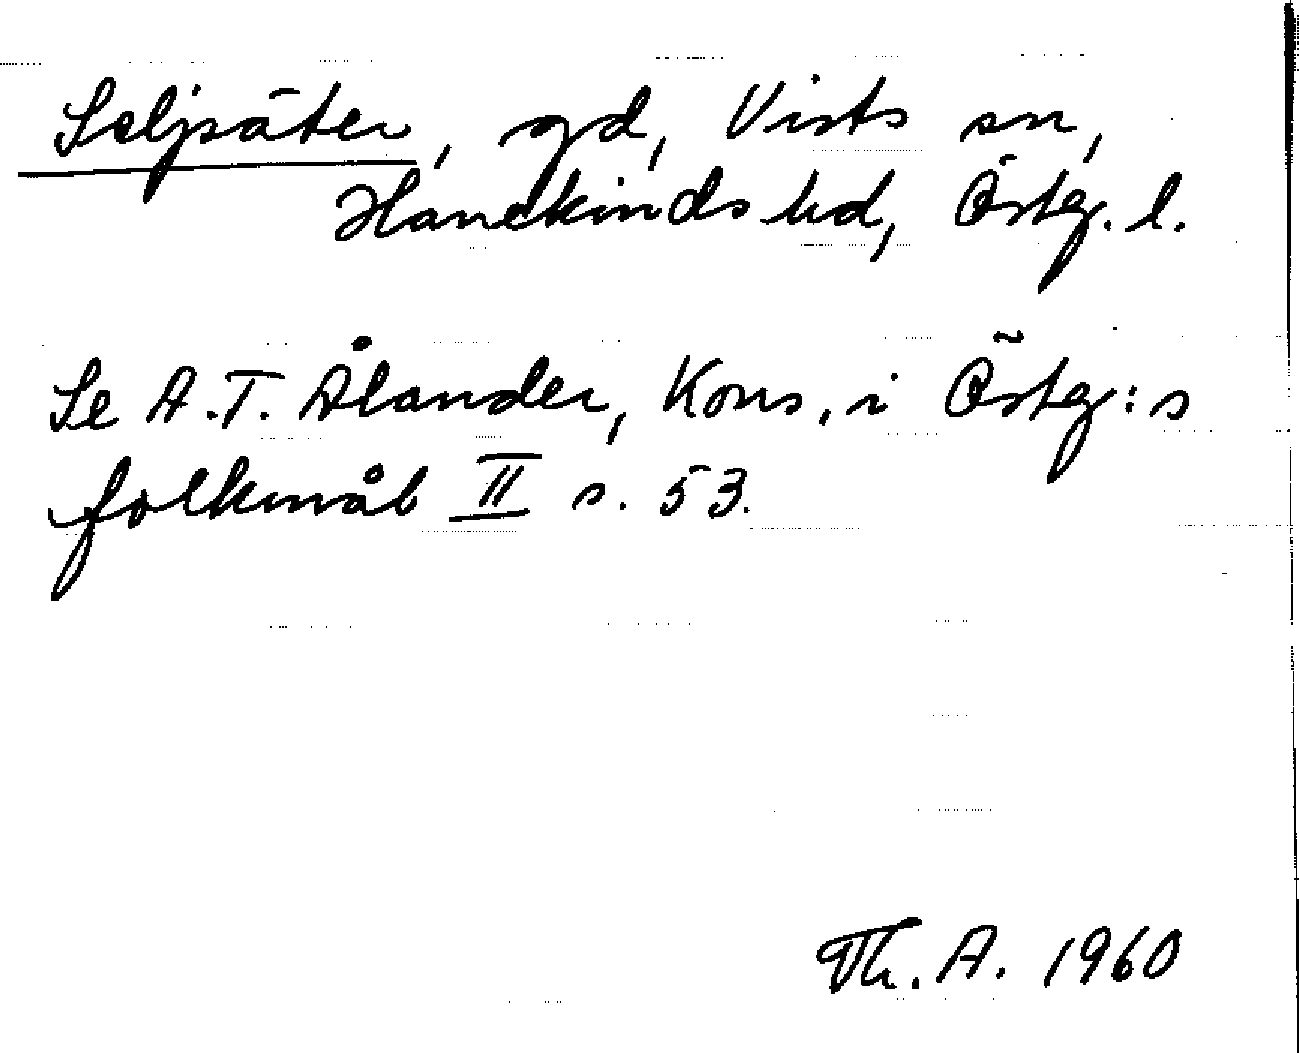 Seljsäter, gd, Vists sn,
Hanekinds hd, Östg. l.
Se A.T. Ålander, Kons. i Östg:s
folkmål II s. 53.
Th. A. 1960